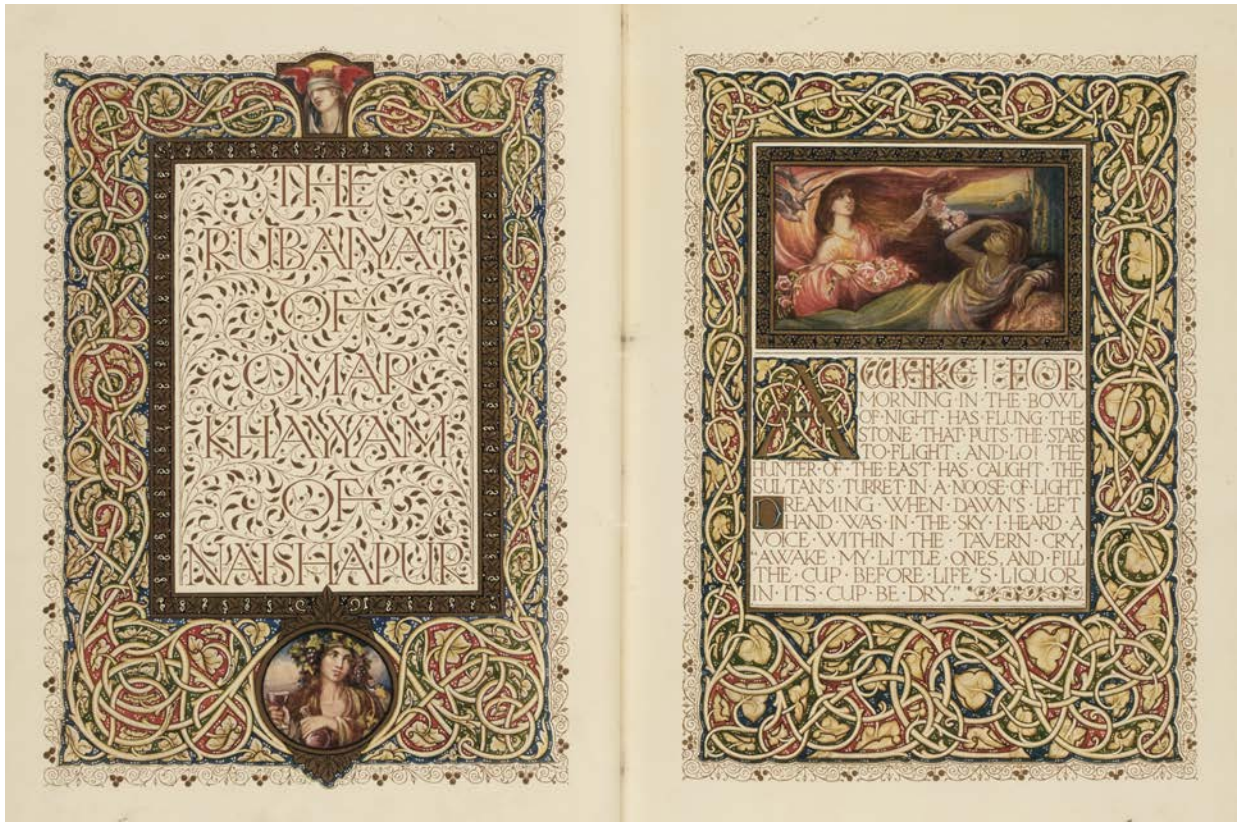 THE
RUBAIYAT
OF
OMAR
KHAYYAM
OF
NAISHAPUR
AWAKE! FOR
MORNING·IN·THE·BOWL
OF·NIGHT·HAS·FLUNG·THE
STONE·THAT·PUTS·THE·STARS
TO·FLIGHT: AND·LO! THE
HUNTER·OF·THE·EAST·HAS·CAUGHT·THE
SULTAN'S·TURRET·IN·A·NOOSE·OF·LIGHT.
DREAMING·WHEN·DAWN'S·LEFT
HAND·WAS·IN·THE·SKY·I·HEARD·A
VOICE·WITHIN·THE·TAVERN·CRY,
"AWAKE·MY·LITTLE·ONES, AND·FILL
THE·CUP·BEFORE·LIFE'S·LIQUOR
IN·ITS·CUP·BE·DRY."